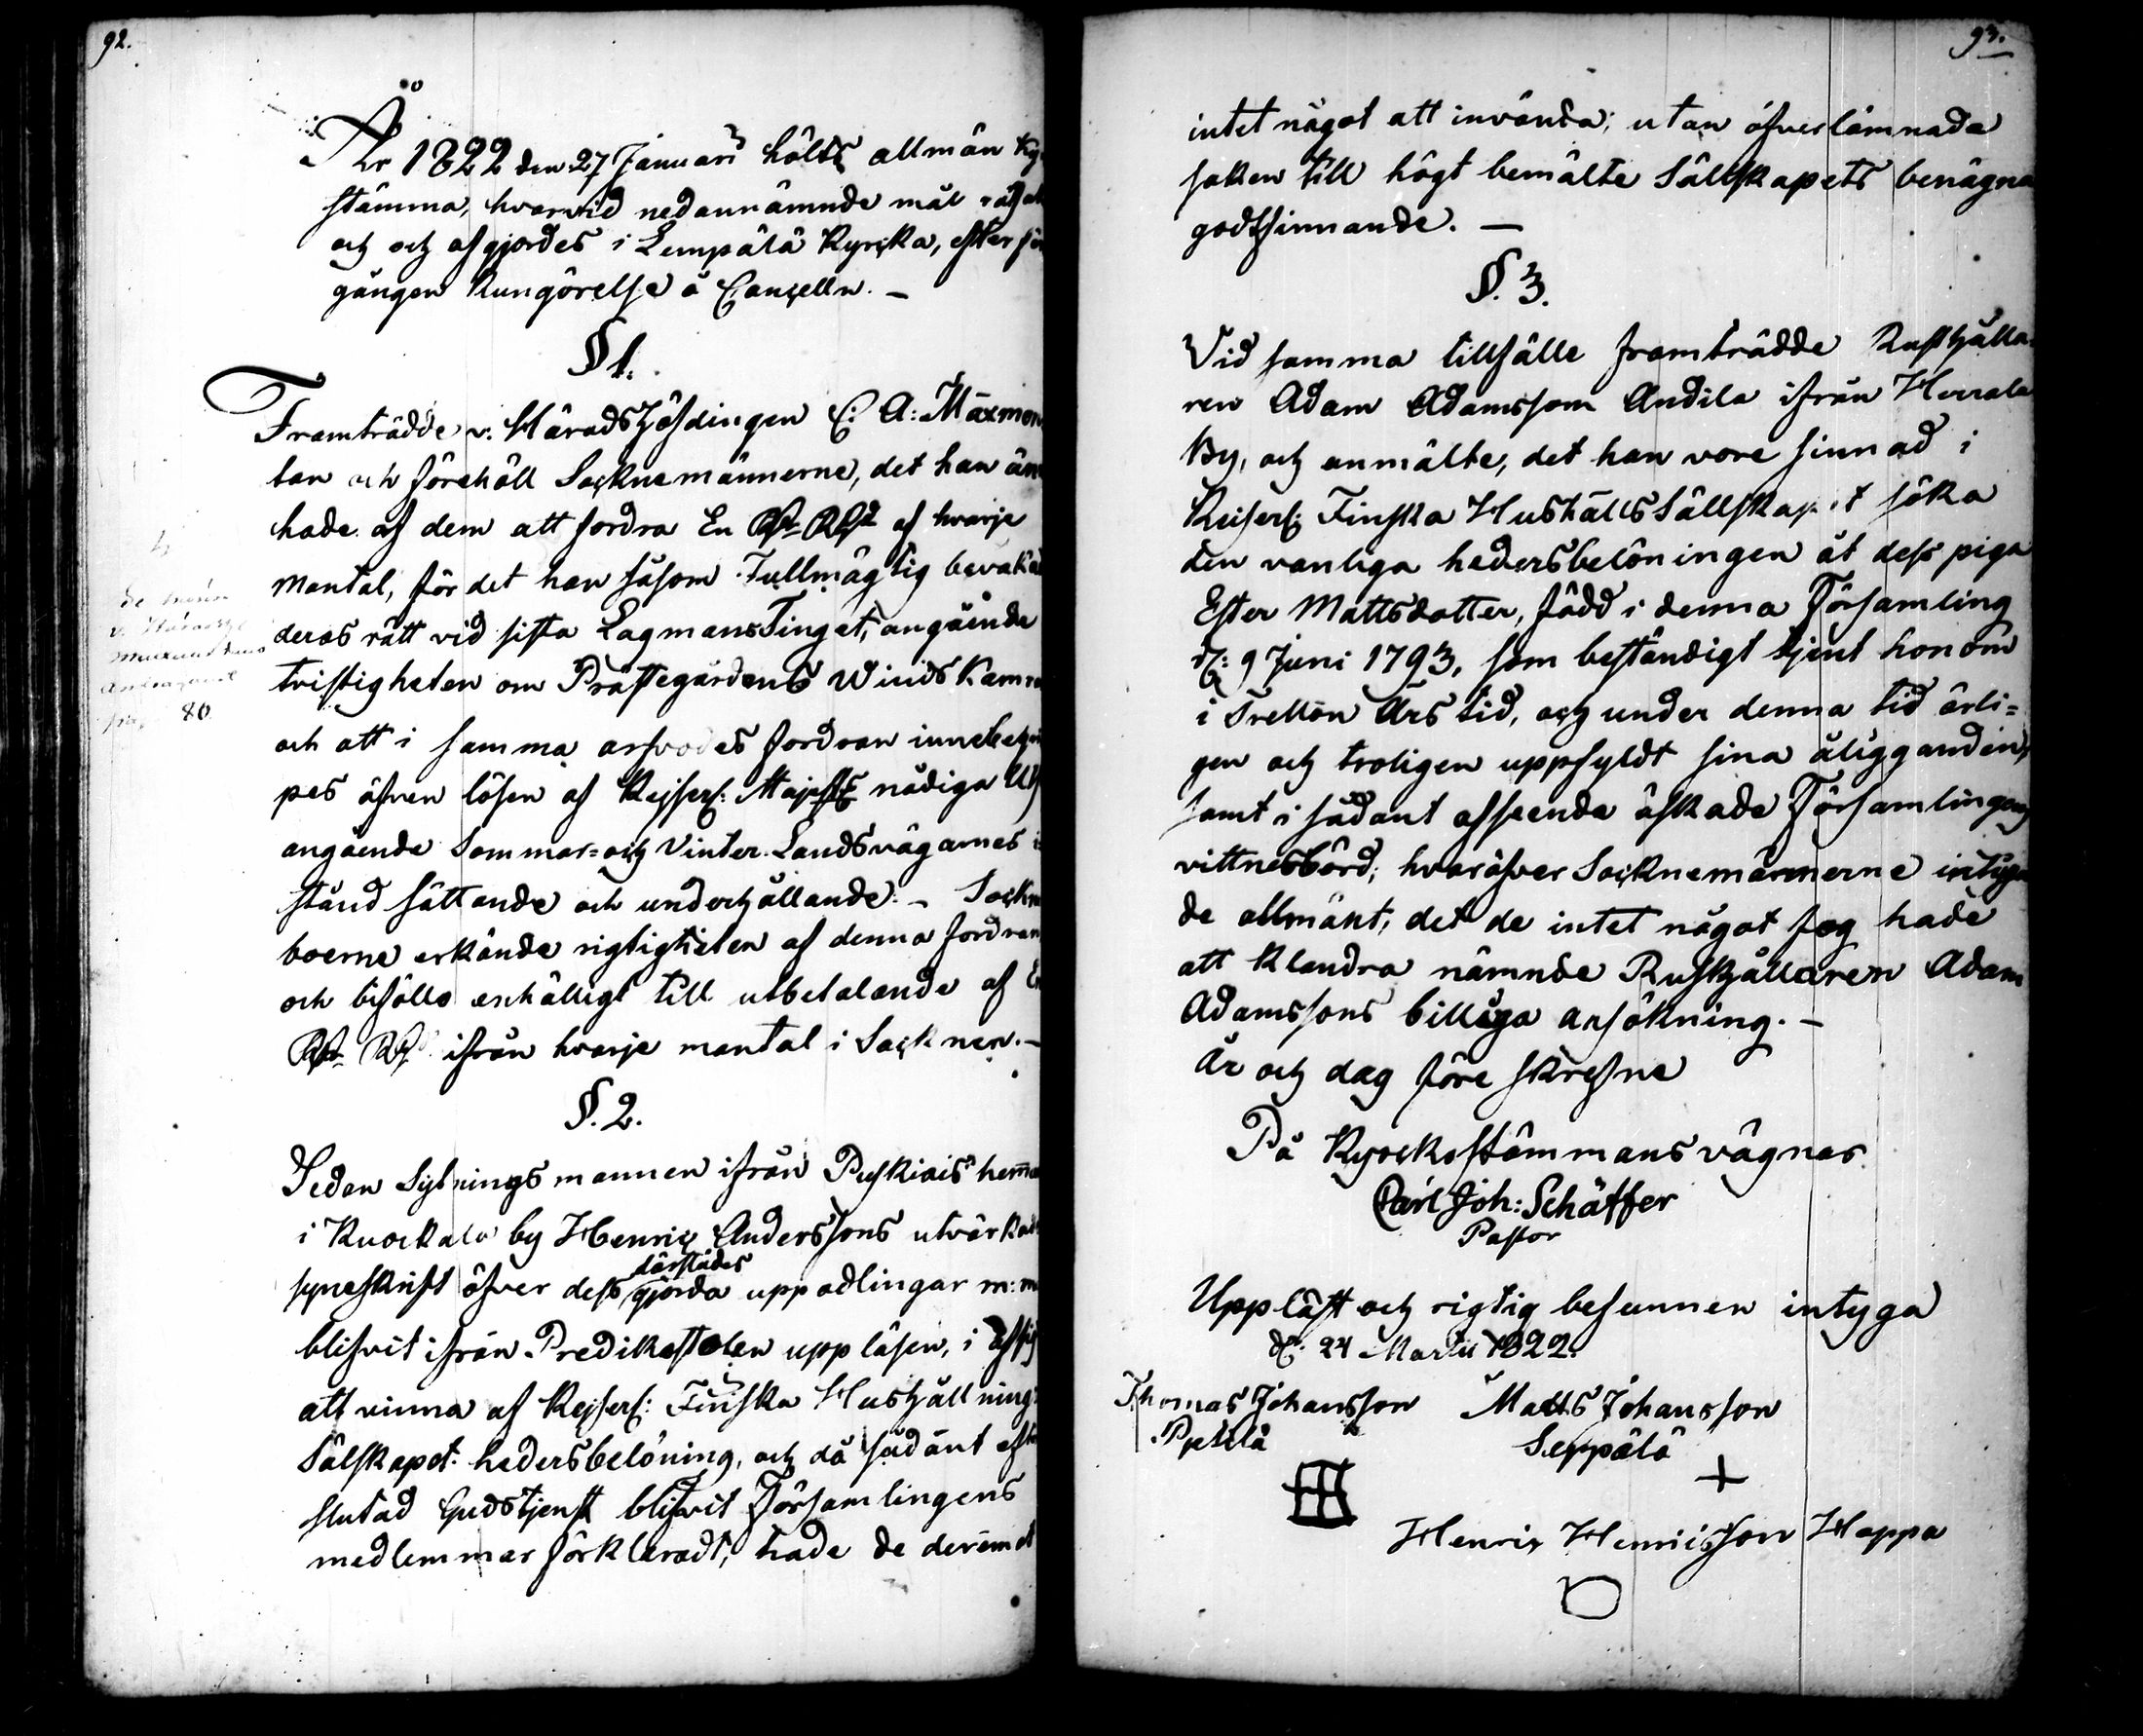 92.
År 1822 den 27 Januarii hölts allmän Ky
stämma, hvarvid nedannämnde mål
och och afgjordes i Lempälä Kyrcka, efter för
gången Kungörelse å Cancelln. –
§ 1.
Framträdde v. Häradshöfdingen C: A: Maxmon
tan och förehöll Socknemännerne, det han än
hade af dem att fordra En af hvarje
mantal, för det han såsom Fullmägtig bevakad
deras rätt vid sista LagmansTinget, angående
tvistigheten om Prästegårdens Winds Kam
och att i samma arfvodes fordran innebeg
pes äfven lösen af Kejserl: Majsts nådiga Uts
angående Sommar= och Vinter Landsvägarnes i
stånd sättande och underhållande. – Sockn
boerne erkände rigtigheten af denna fordran
och biföllo enhälligt till utbetalande af En
ifrån hvarje mantal i Socknen. –
§. 2.
Sedan Sytningsmannen ifrån Puskiais hem̄a
i Kuockala by Henric Anderssons utvärkad
syneskrift öfver dess gjorda uppodlingar m: m
därstädes
blifvit ifrån Predikostolen uppläsen, i afsig
att vinna af Kejserl: Finska Hushållnings
Sälskapet hedersbelöning, och då sådant efter
slutad Gudstjenst blifvit Församlingens
medlemmar förklaradt, hade de deremot
de
v. Häradsh
Maxmontans
pag. 80
93.
intet något att invända; utan öfverlämnade
saken till högt bemälte Sällskapets benägna
godtfinnande. –
§. 3.
Vid samma tillfälle framträdde Rusthålla
ren Adam Adamsson Andila ifrån Herrala
By, och anmälte, det han vore sinnad i
Keiserl: Finska Hushålls Sällskapet söka
den vanliga hedersbelöningen åt dess piga
Ester Mattsdotter, född i denna Församling
d: 9 Juni 1793, som beständigt tjent honom
i Tretton Års tid, och under denna tid ärli=
gen och troligen uppfyldt sina åligganden,
samt i sådant afseende äskade Församlingens
vittnesbörd; hvaröfver Socknemännerne intyga
de allmänt, det de intet något fog hade
att klandra nämnde Rusthållaren Adam
Adamssons billiga ansökning. –
År och dag före skrefne
På Kyrckostämmans vägnar
Carl Joh: Schäffer
Pastor
Uppläst och rigtig befunnen intyga
d: 24 Martii 1822.
Thomas Johansson Matts Johansson
Seppälä
Henric Henricsson Happa